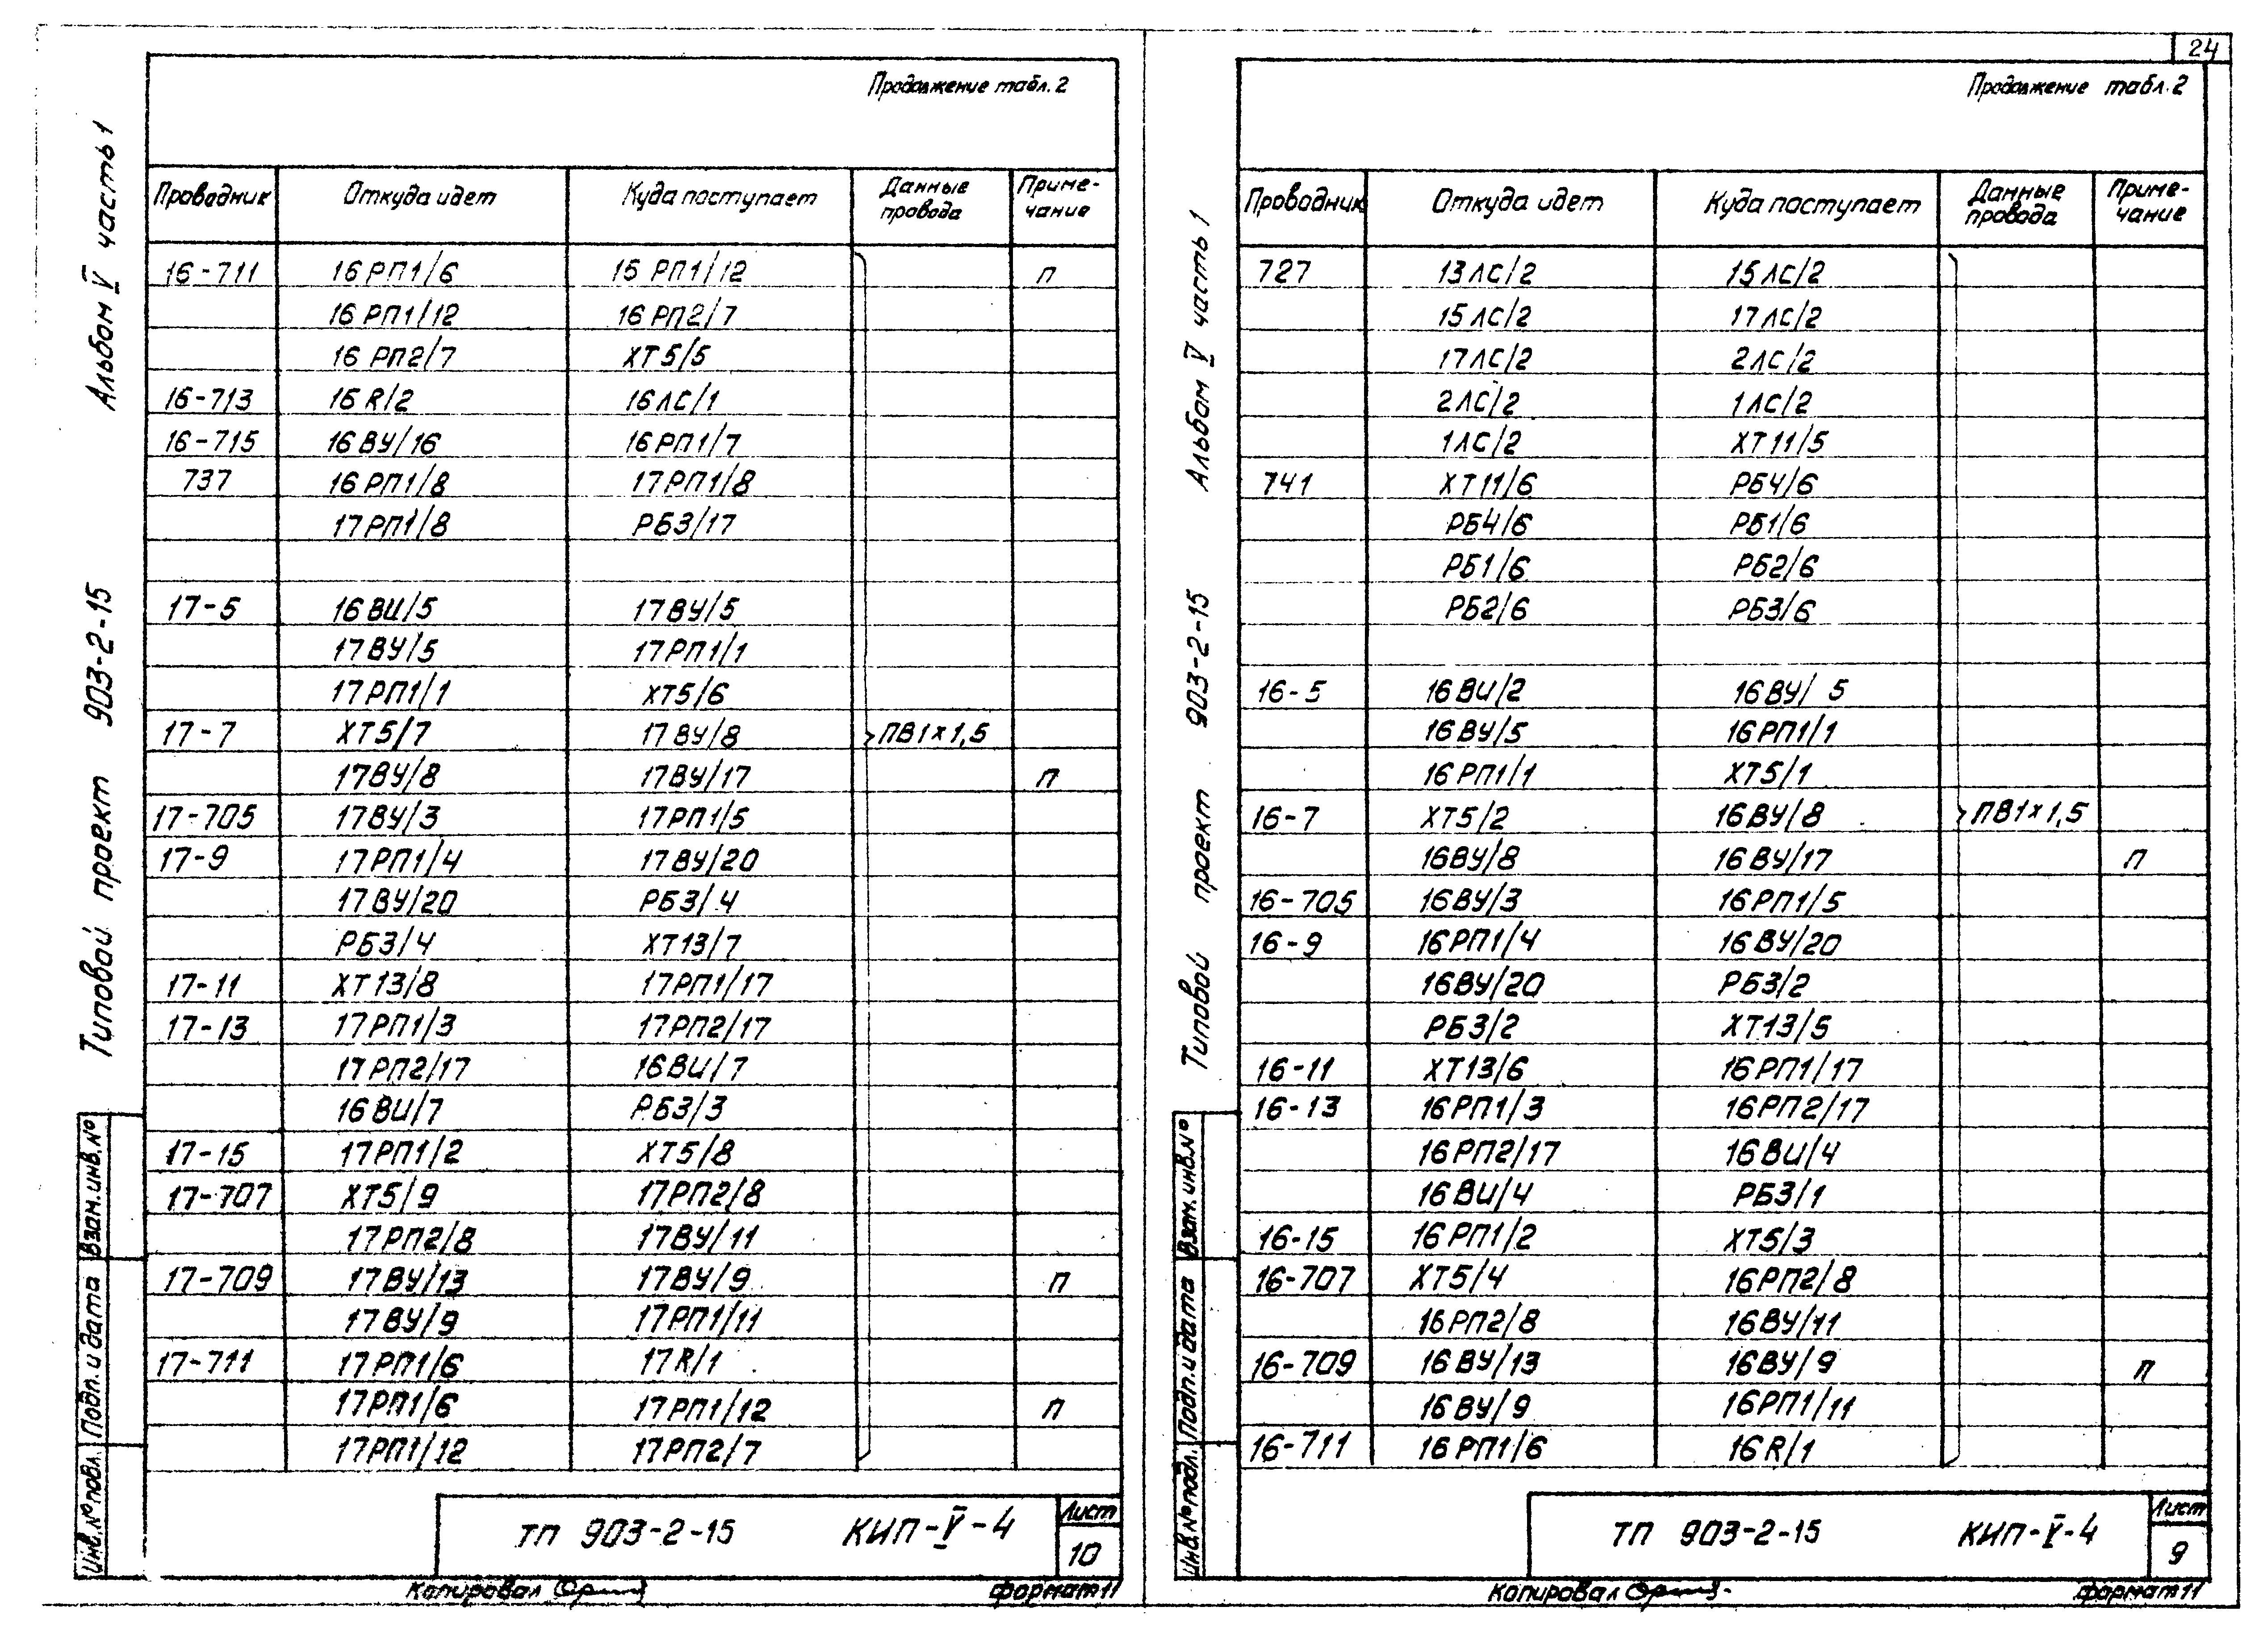 Альбом V часть 1
Типовой проект 903-2-15
Взам.инв.№
Подп. и дата
Инв.№ подл.
Продолжение табл.2
Проводник Откуда идет Куда поступает Данные провода Примечание
16-711 16РП1/6 16РП1/12 п
16РП1/12 16РП2/7
16РП2/7 ХТ5/5
16-713 16R/2 16ЛС/1
16-715 16ВУ/16 16РП1/7
737 16РП1/8 17РП1/8
17РП1/8 РБ3/17
17-5 16ВИ/5 17ВУ/5
17ВУ/5 17РП1/1
17РП1/1 ХТ5/6
17-7 ХТ5/7 17ВУ/8 ПВ1×1,5
17ВУ/8 17ВУ/17 п
17-705 17ВУ/3 17РП1/5
17-9 17РП1/4 17ВУ/20
17ВУ/20 РБ3/4
РБ3/4 ХТ13/7
17-11 ХТ13/8 17РП1/17
17-13 17РП1/3 17РП2/17
17РП2/17 16ВИ/7
16ВИ/7 РБ3/3
17-15 17РП1/2 ХТ5/8
17-707 ХТ5/9 17РП2/8
17РП2/8 17ВУ/11
17-709 17ВУ/13 17ВУ/9 п
17ВУ/9 17РП1/11
17-711 17РП1/6 17R/1
17РП1/6 17РП1/12 п
17РП1/12 17РП2/7
ТП 903-2-15 КИП-V-4
Лист
10
Копировал
формат 11
24
Альбом V часть 1
Типовой проект 903-2-15
Взам.инв.№
Подп. и дата
Инв.№ подл.
Продолжение табл.2
Проводник Откуда идет Куда поступает Данные провода Примечание
727 13ЛС/2 15ЛС/2
15ЛС/2 17ЛС/2
17ЛС/2 2ЛС/2
2ЛС/2 1ЛС/2
1ЛС/2 ХТ11/5
741 ХТ11/6 РБ4/6
РБ4/6 РБ1/6
РБ1/6 РБ2/6
РБ2/6 РБ3/6
16-5 16ВИ/2 16ВУ/5
16ВУ/5 16РП1/1
16РП1/1 ХТ5/1
16-7 ХТ5/2 16ВУ/8 ПВ1×1,5
16ВУ/8 16ВУ/17 п
16-705 16ВУ/3 16РП1/5
16-9 16РП1/4 16ВУ/20
16ВУ/20 РБ3/2
РБ3/2 ХТ13/5
16-11 ХТ13/6 16РП1/17
16-13 16РП1/3 16РП2/17
16РП2/17 16ВИ/4
16ВИ/4 РБ3/1
16-15 16РП1/2 ХТ5/3
16-707 ХТ5/4 16РП2/8
16РП2/8 16ВУ/11
16-709 16ВУ/13 16ВУ/9 п
16ВУ/9 16РП1/11
16-711 16РП1/6 16R/1
ТП 903-2-15 КИП-V-4
Лист
9
Копировал
формат 11